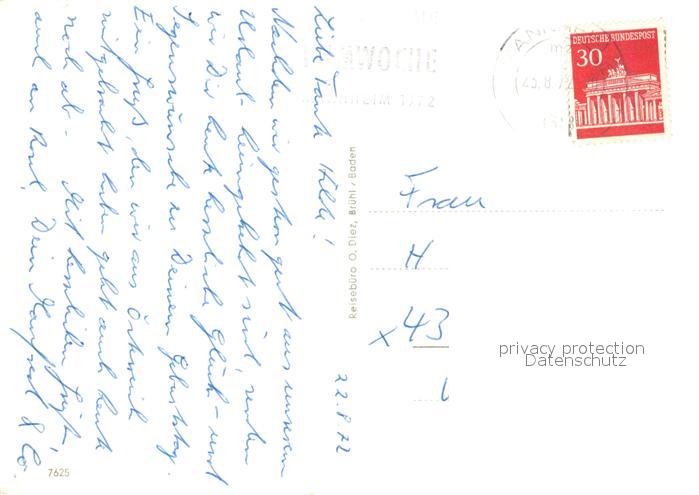 22.8.72
Liebe Tante Hilde!
Nachdem wir gestern gut aus unserem
Urlaub heimgekehrt sind, senden
wir Dir heute herzliche Glück- und
Segenswünsche zu Deinem Geburtstag.
Ein Gruß, den wir aus Österreich
mitgebracht haben geht auch heute
noch ab. Mit herzlichen Grüßen,
auch an Rosl, Dein Manfred & Co.
7625
Reisebüro O. Diez, Brühl/Baden
WOCHE
1972
DEUTSCHE BUNDESPOST
30
Frau
H
x 43
privacy protection
Datenschutz